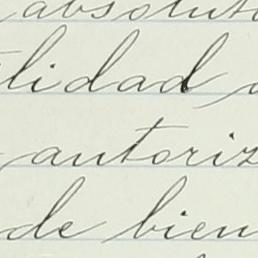 absolut
lidad
autoriz
de bien